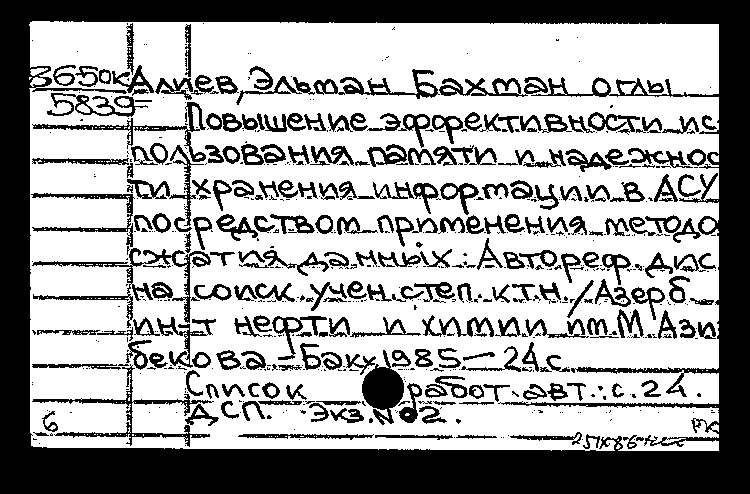 3650к Алиев, Эльман Бахман оглы
5839= Повышение эффективности ис-
пользования памяти и надежнос
ти хранения информации в АСУ
посредством применения методо
сжатия данных: Автореф. дис
на соиск. учен. степ. к.т.н. / Азерб
ин-т нефти и химии им. М. Ази
бекова - Баку 1985 - 24 с
Список работ авт.: с. 24.
ДСП. Экз. № 2.
6